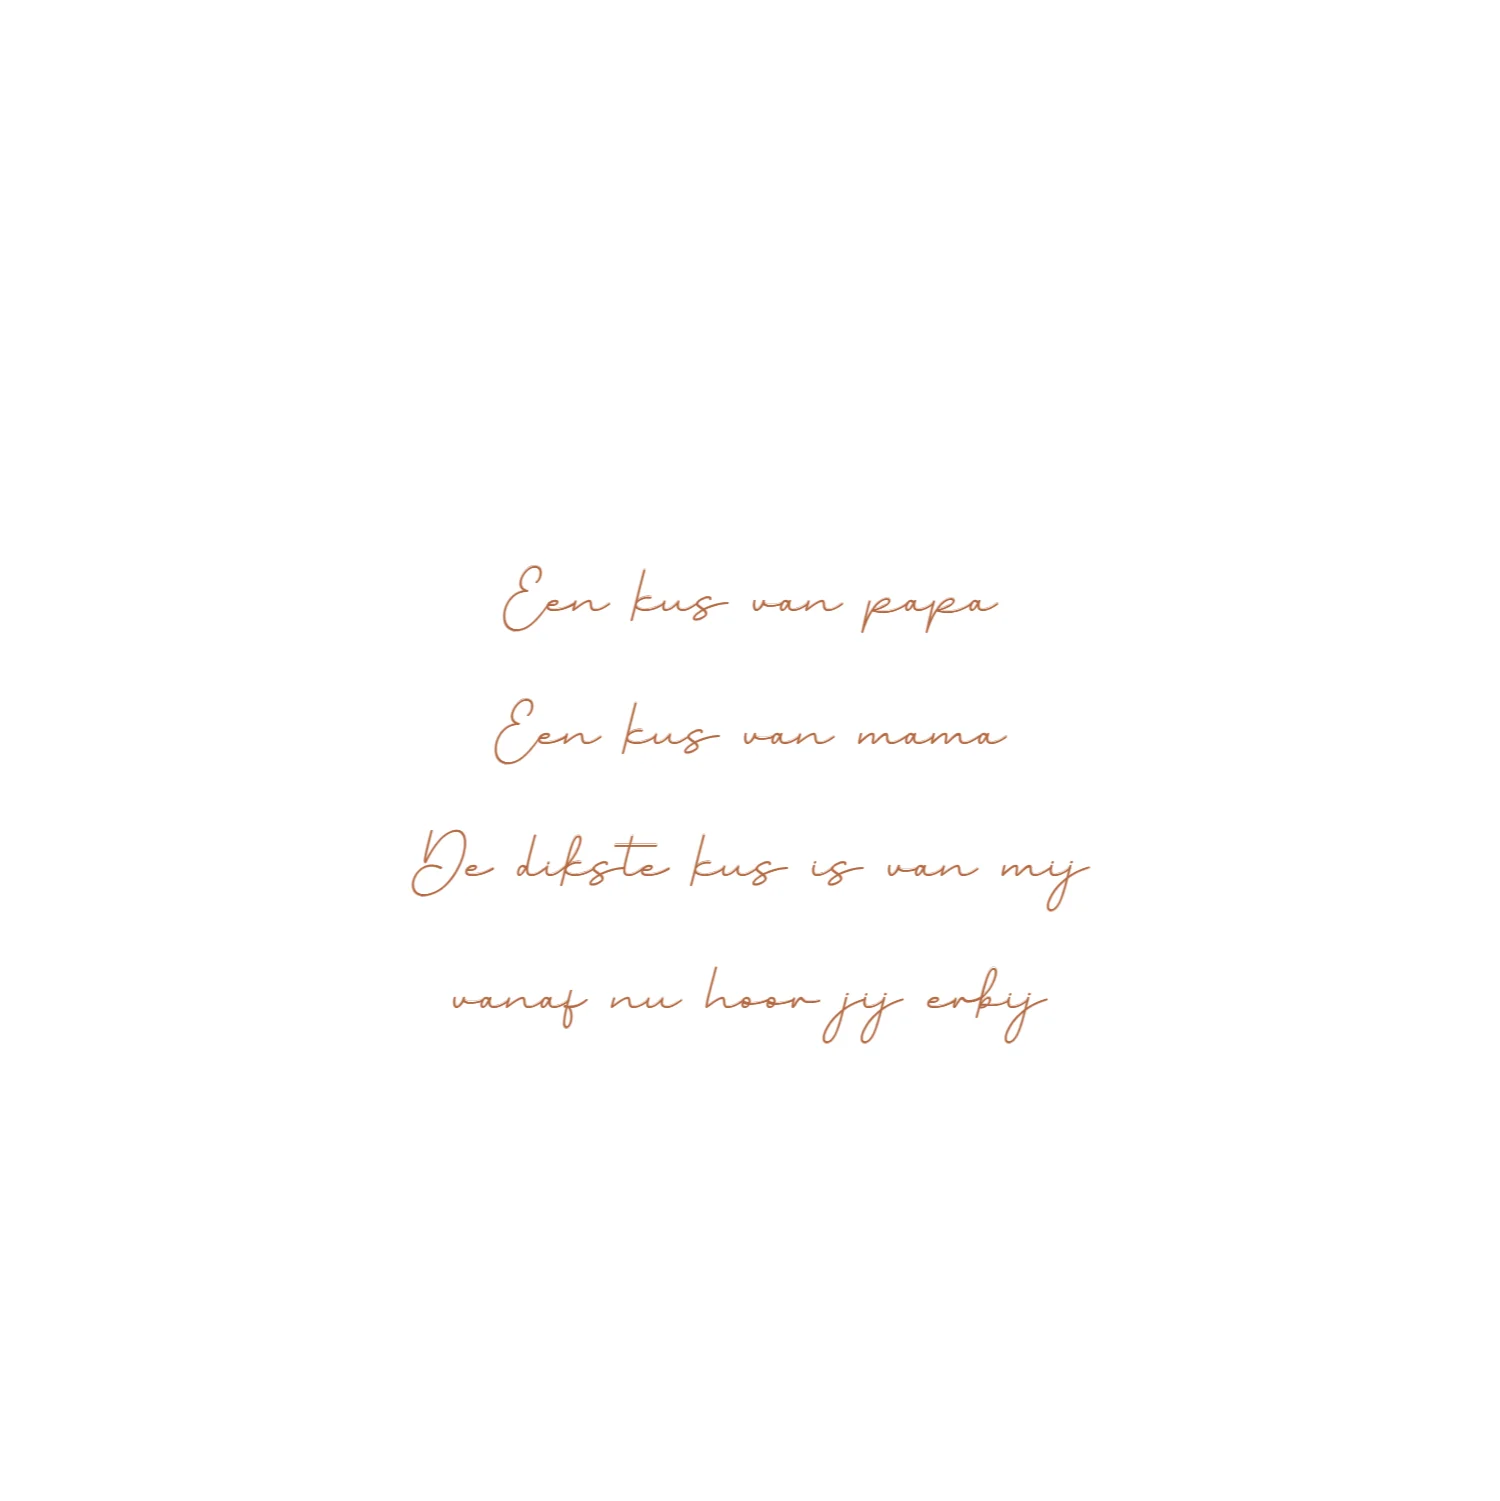 Een kus van papa
Een kus van mama
De dikste kus is van mij
vanaf nu hoor jij erbij